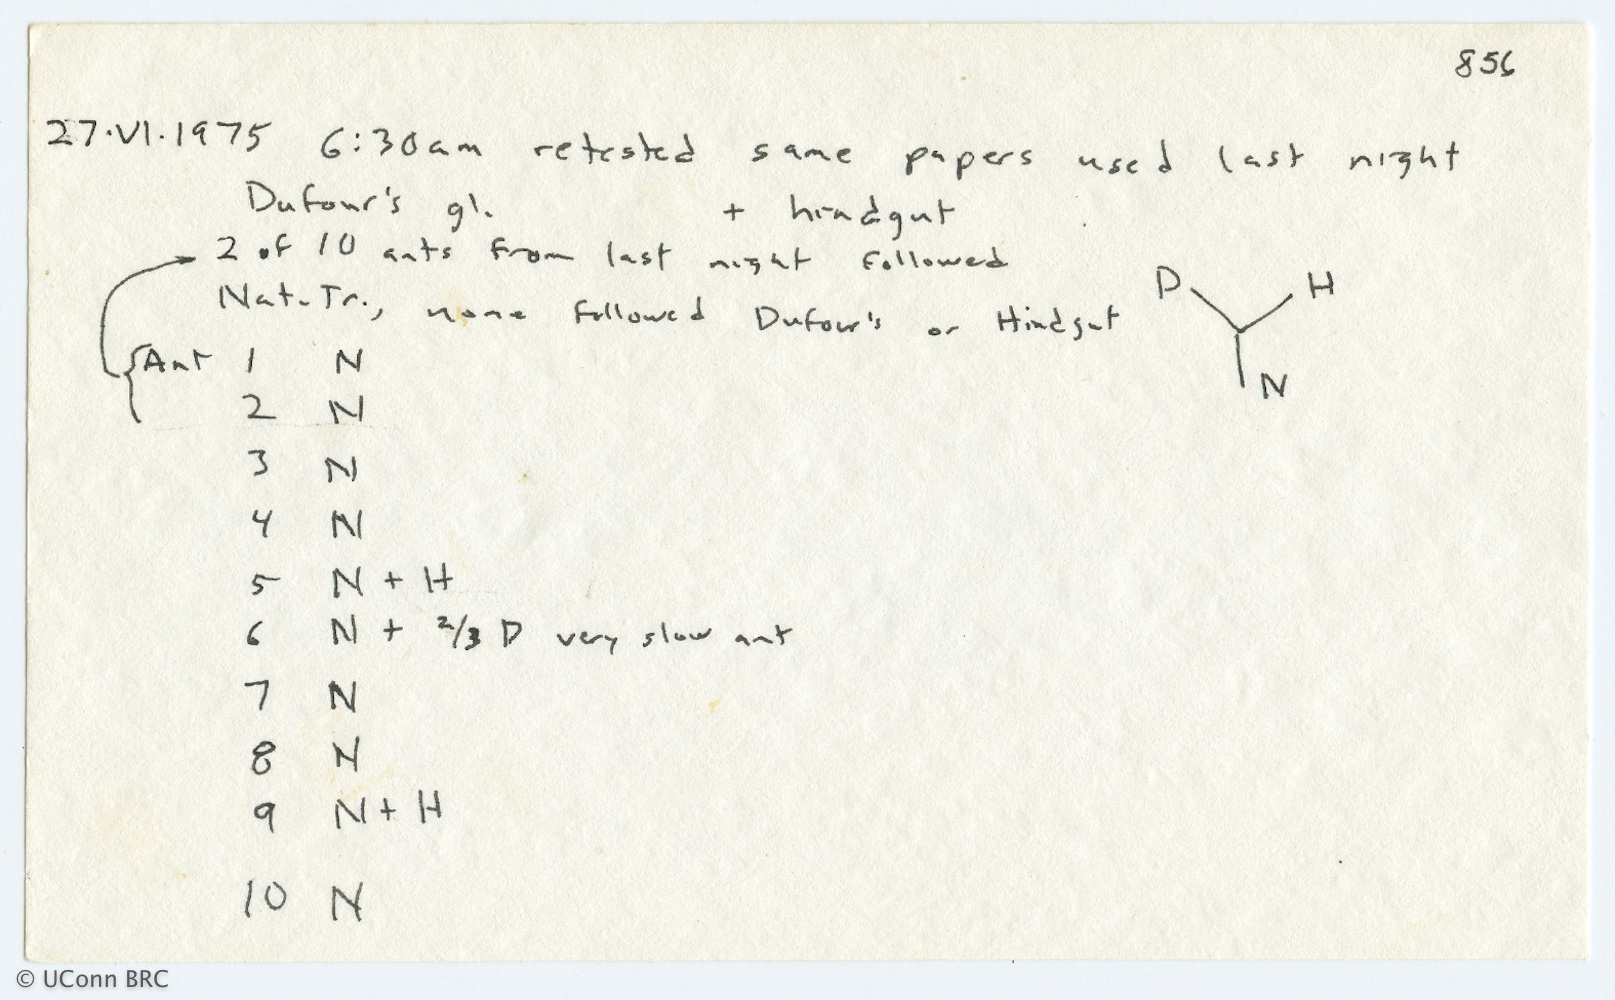 856
27·VI·1975 6:30am retested same papers used last night
Dufour's gl. + hindgut
2 of 10 ants from last night followed
Nat. Tr., none followed Dufour's or Hindgut
D H
N
Ant 1 N
2 N
3 N
4 N
5 N + H
6 N + 2/3 D very slow ant
7 N
8 N
9 N + H
10 N
© UConn BRC